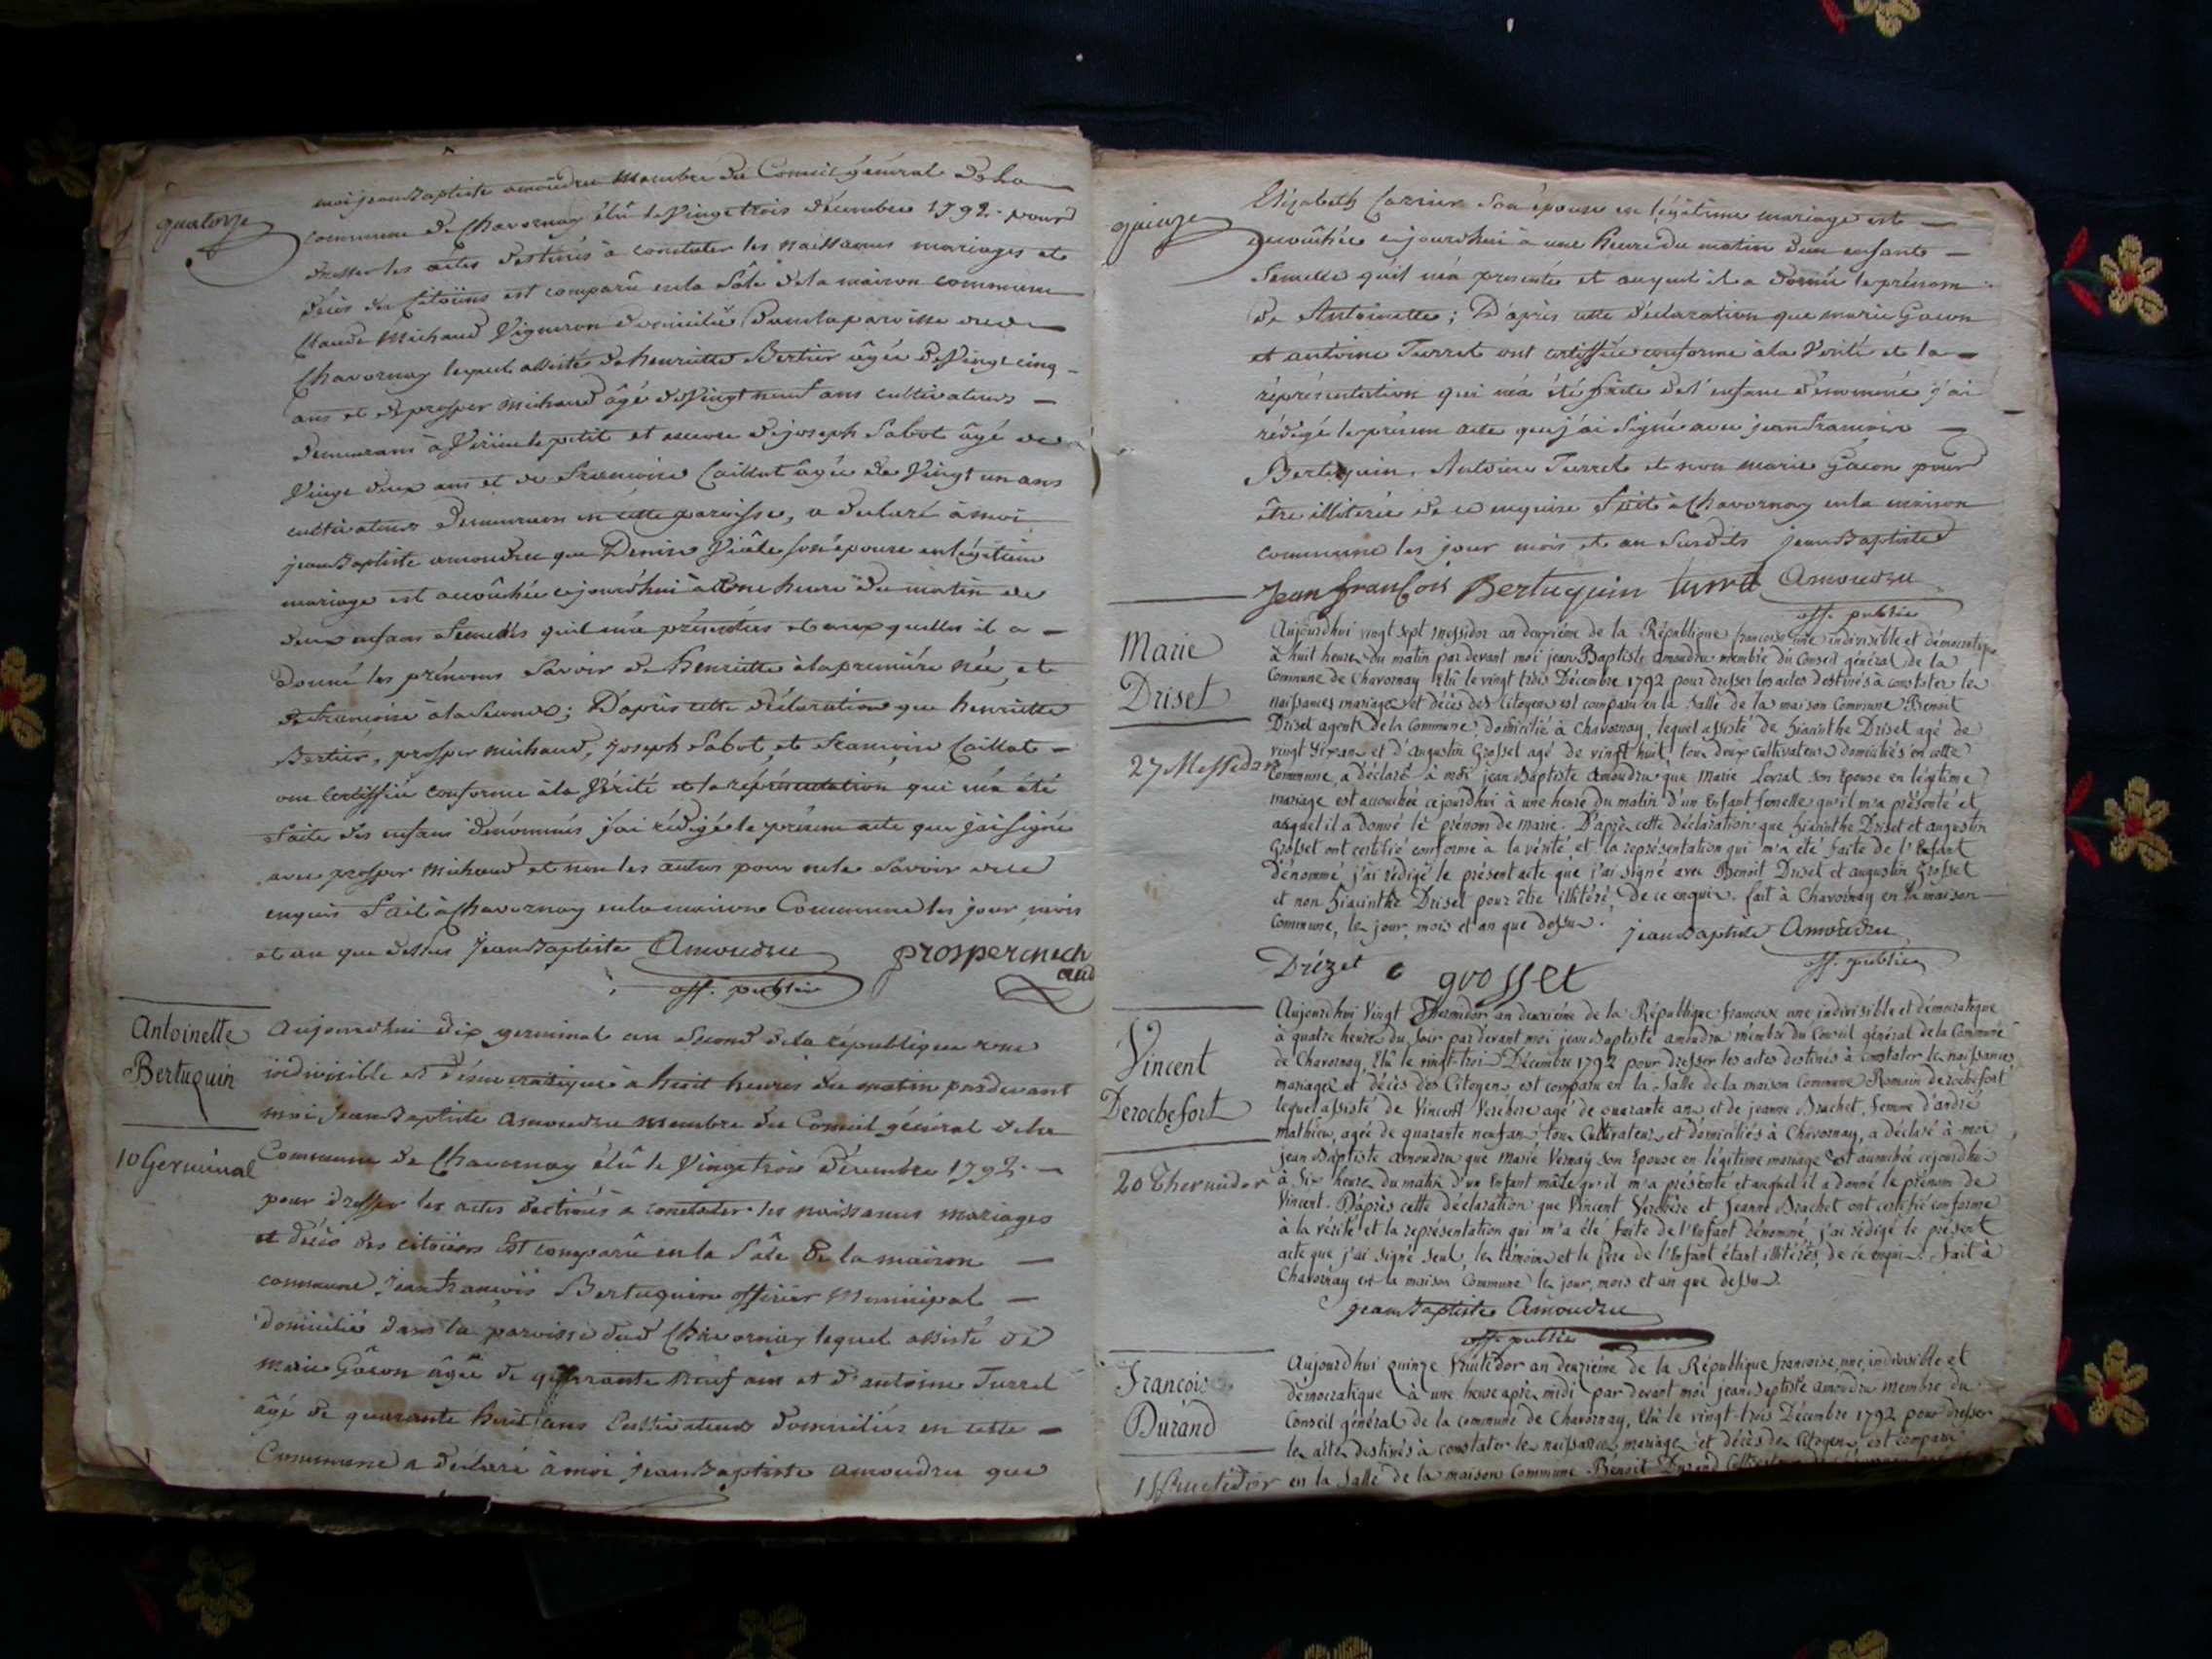 quatorze
moi jean Baptiste amoudru Membre du Conseil général de la
commune de Chavornay élû le Vingt trois décembre 1792. pour
dresser les actes destinés à constater les naissances mariages et
décès des Citoïens est comparû en la sale de la maison commune
Claude Michaud Vigneron domicilié dans la paroisse dud
Chavornay lequel assisté de henriette Bertier âgée de Vingt cinq
ans et de prosper Michaud âgé de Vingt neuf ans cultivateurs
demeurans à Virieu le petit et encore de joseph Sabot âgé de
Vingt deux ans et de francoise Caillat âgée de Vingt un ans
cultivateurs demeurans en cette paroisse, a déclaré à moi
jean Baptiste amoudru que Denise son épouse en légitime
mariage est accoûchée cejourd'hui à heure du matin de
deux enfans femelles qu'il m'a présentées et auxquelles il a
donné les prénoms savoir de henriette à la première née, et
de francoise à la seconde; D'après cette déclaration que henriette
Bertier, prosper michaud, joseph Sabot, et francoise Caillat
ont certiffié conforme à la Vérité et la représentation qui m'a été
faite des enfans dénommés j'ai rédigé le présent acte que j'ai signé
avec prosper Michaud et non les autres pour ne le savoir de ce
enquis fait à Chavornay en la maison Commune les jour mois
et an que dessus jean Baptiste Amoudru prospermich
off. public aud
Antoinette
Bertuquin
10 Germinal
Aujourdhui dix germinal an second de la république une
indivisible et démocratique à huit heures du matin pardevant
moi jean Baptiste amoudru membre du Conseil général de la
Commune de Chavornay élû le Vingt trois décembre 1792.
pour dresser les actes destinés a constater les naissances mariages
et décès des citoiens Est comparû en la sâle de la maison
commune jean françois Bertuquin officier Municipal
domicilié dans la paroisse dud Chavornay lequel assisté de
marie Gâcon âgée de quarante neuf ans et d'antoine Turrel
âgé de quarante huit ans Cultivateurs domiciliés en cette
Commune a déclaré à moi jean Baptiste amoudru que
quinze
Elizabeth Carrier son épouse en légitime mariage est
accouchée cejourd'hui à une heure du matin d'un enfant
femelle qu'il m'a présenté et auquel il a donné le prénom
de Antoinette; D'après cette déclaration que marie Gacon
et antoine Turrel ont certiffiée conforme à la Vérité et la
représentation qui m'a été faite de l'enfant dénommé j'ai
rédigé le présent acte que j'ai signé avec jean francois
Bertuquin, Antoine Turrel et non marie Gacon pour
être illitérée de ce enquise fait à Chavornay en la maison
commune les jour mois et an susdits jean Baptiste
Jean françois Bertuquin turrel Amoudru
off. public
Marie
Driset
27 Messidor
Aujourdhui vingt sept messidor an deuxième de la République francoise une indivisible et démocratique
à huit heures du matin par devant moi jean Baptiste amoudru membre du Conseil général de la
Commune de Chavornay élû le vingt trois Décembre 1792 pour dresser les actes destinés à constater les
naissances mariages et décès des Citoyens est comparu en la Salle de la maison Commune Benoit
Driset agent de la Commune, domicilié à Chavornay, lequel assisté de hiacinthe Driset agé de
vingt six ans et d'Augustin Grosset agé de vingt huit, tous deux Cultivateurs domiciliés en cette
Commune, a déclaré à moi jean Baptiste Amoudru que Marie son Epouse en légitime
mariage est accouchée cejourdhui à une heure du matin d'un Enfant femelle qu'il m'a présenté et
auquel il a donné le prénom de Marie. D'après cette déclaration que hiacinthe Driset et augustin
Grosset ont certifié conforme à la vérité et la représentation qui m'a été faite de l'Enfant
dénommé j'ai rédigé le présent acte que j'ai signé avec Benoit Driset et augustin Grosset
et non hiacinthe Driset pour être illitéré, de ce enquis. fait à Chavornay en la maison
Commune, les jour, mois et an que dessus. jean Baptiste Amoudru
Drézet grosset off. public
Vincent
Derochefort
20 Thermidor
Aujourdhui Vingt Thermidor an deuxième de la République francoise une indivisible et démocratique
à quatre heures du Soir par devant moi jean Baptiste amoudru membre du Conseil général de la Commune
de Chavornay, élû le vingt-trois Décembre 1792 pour dresser les actes destinés à constater les naissances
mariages et décès des Citoyens est comparu en la Salle de la maison Commune Romain Derochefort
lequel assisté de Vincent Verchere agé de quarante ans et de jeanne Brachet, femme d'andré
Mathieu, agée de quarante neuf ans tous Cultivateurs et domiciliés à Chavornay, a déclaré à moi
jean Baptiste amoudru que Marie Vernay son Epouse en légitime mariage est accouchée cejourdhui
à Six heures du matin d'un Enfant mâle qu'il m'a présenté et auquel il a donné le prénom de
Vincent. D'après cette déclaration que Vincent Verchère et Jeanne Brachet ont certifié conforme
à la vérité et la représentation qui m'a été faite de l'Enfant dénommé, j'ai rédigé le présent
acte que j'ai signé seul, les témoins et le Père de l'Enfant étant illitérés, de ce enquis. fait à
Chavornay en la maison Commune les jour, mois et an que dessus.
jean Baptiste Amoudru
off. public
Francois
Durand
15 fructidor
Aujourdhui quinze fructidor an deuxième de la République francoise une indivisible et
démocratique à une heure après midi par devant moi jean Baptiste amoudru membre du
Conseil général de la commune de Chavornay, élû le vingt-trois Décembre 1792 pour dresser
les actes destinés à constater les naissances mariages et décès des Citoyens, est comparu
en la Salle de la maison Commune Benoit Durand